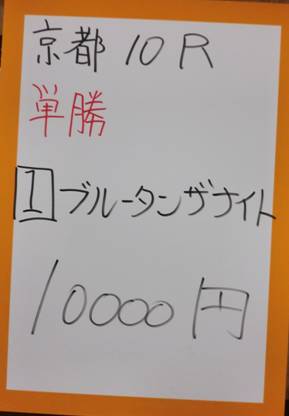 京都10R
単勝
1 ブルータンザナイト
10000円